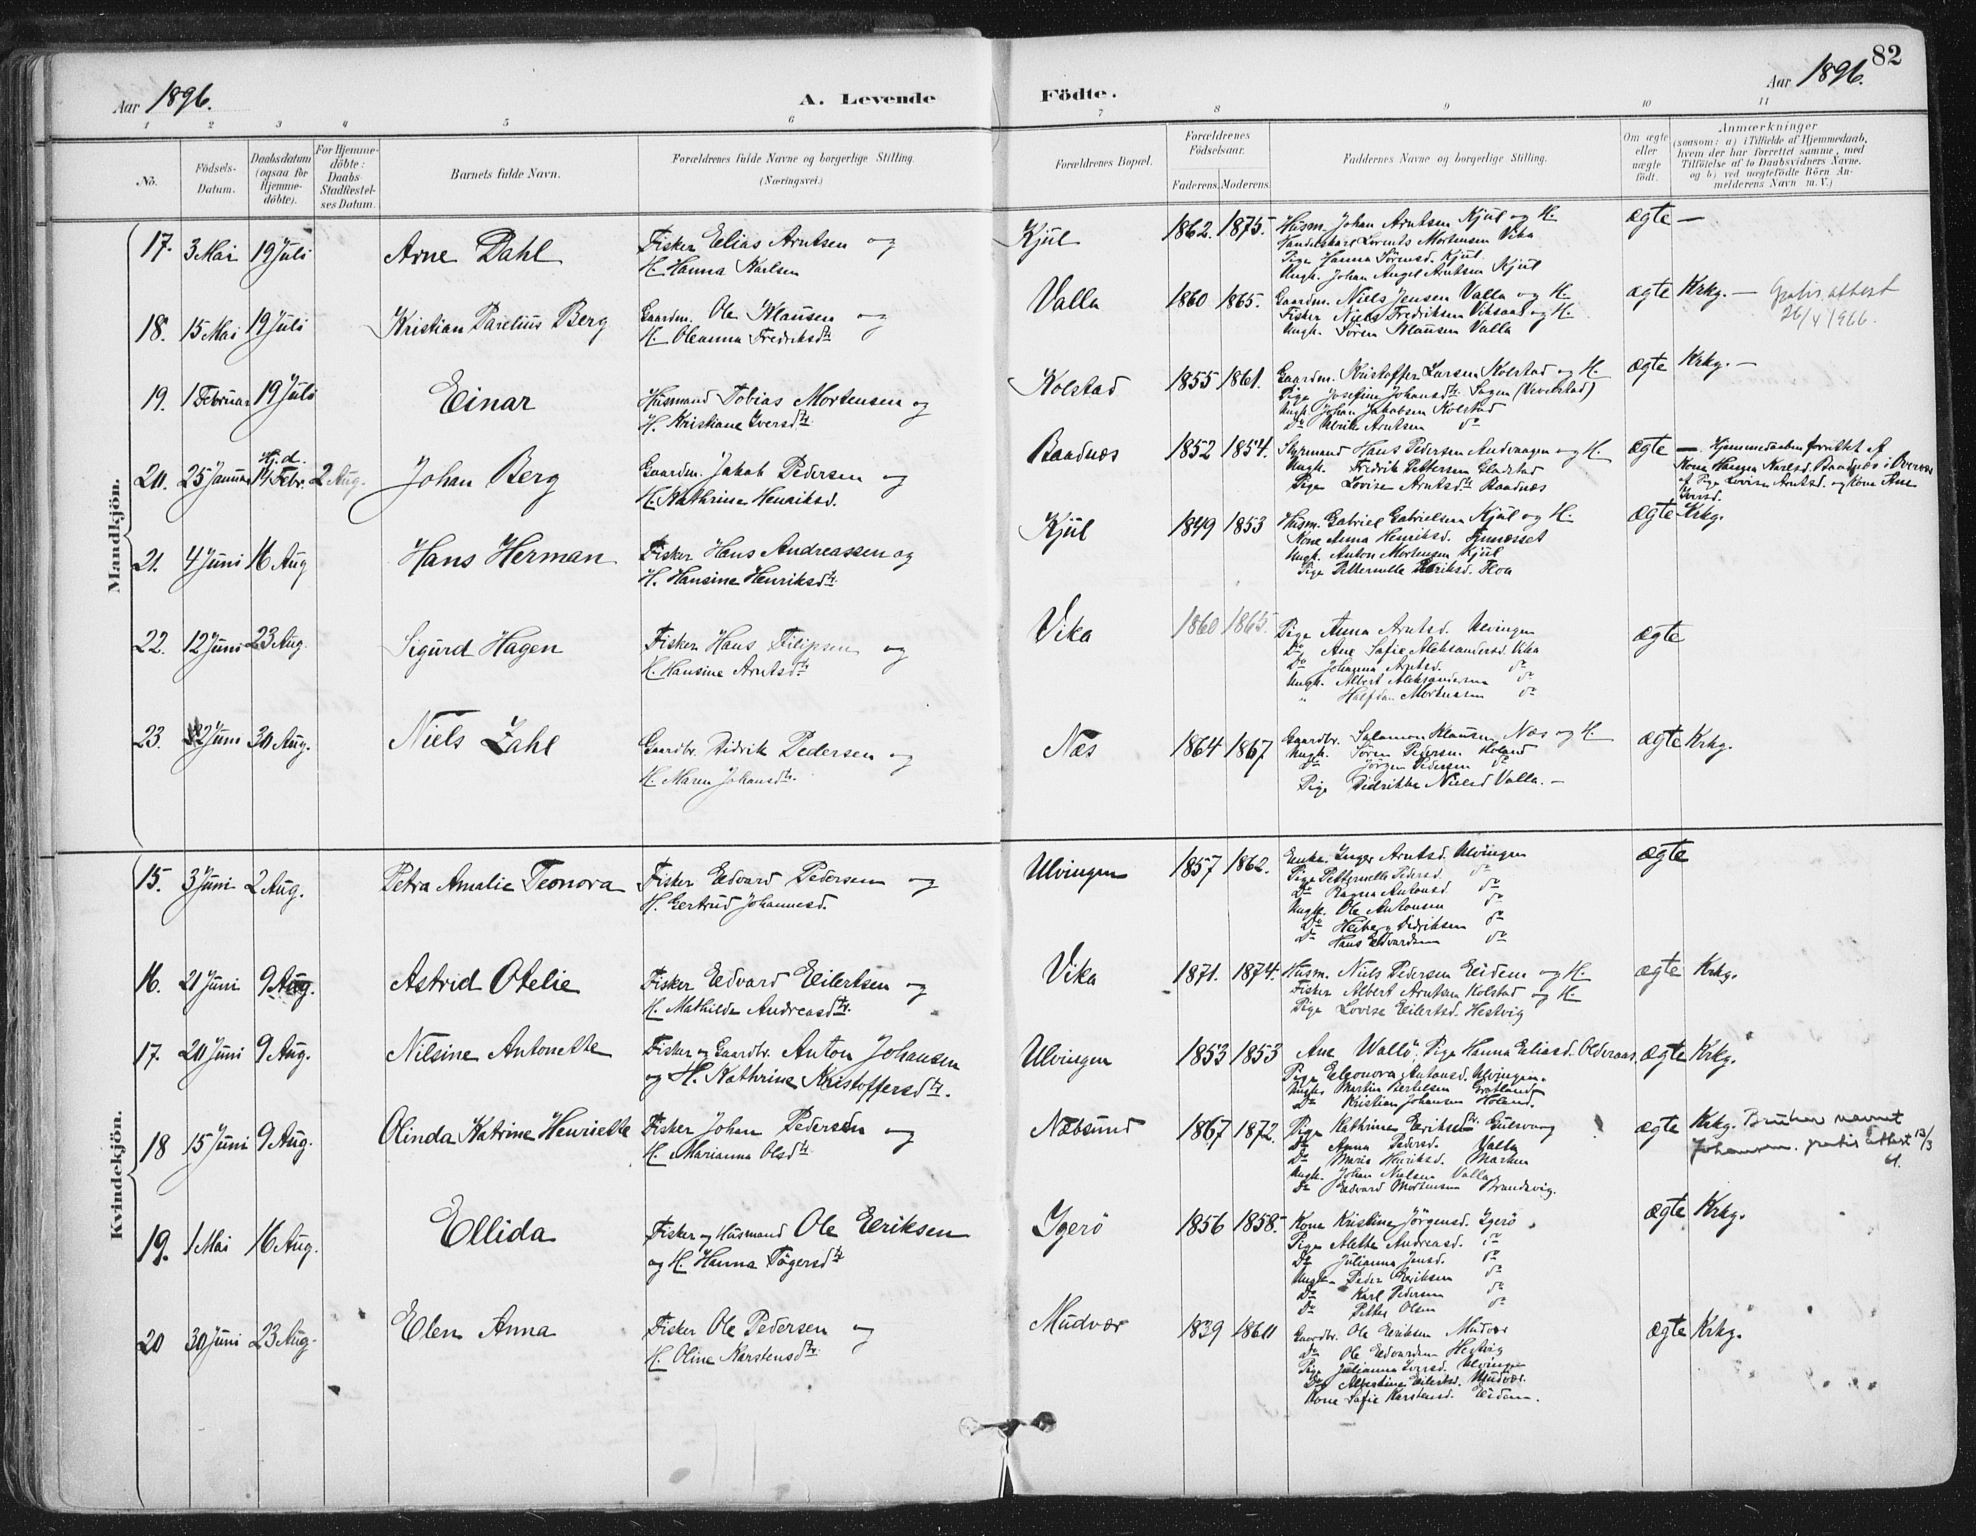 82
Aar 1896.
A. Levende Födte.
Aar 1896.
1 2 3 4 5 6 7 8 9 10 11
No.
Födsels-Datum.
Daabsdatum (ogsaa för Hjemme-döbte).
For Hjemme-döbte: Daabs Stadfæstel-ses Datum.
Barnets fulde Navn.
Forældrenes fulde Navne og borgerlige Stilling. (Næringsvei.)
Forældrenes Bopæl.
Forældrenes Födselsaar.
Faderens. Moderens.
Faddernes Navne og borgerlige Stilling.
Om ægte eller uægte födt.
Anmærkninger
(saasom: a) i Tilfælde af Hjemmedaab,
hvem der har forrettet samme, med
Tilföielse af to Daabsvidners Navne.
og b) ved uægtefödte Börn An-
melderens Navn m. V.)
Mandkjön.
17. 3 Mai 19 Juli Arne Dahl Fisker Elias Arntsen og
H. Hanna Karlsen
Kjul 1862. 1875. Husm. Johan Arntsen Kjul og H.
Lorents Mortensen Vika
Pige Hanna Sörensd. Kjul.
Ungk. Johan Angel Arntsen Kjul
ægte —
18. 15 Mai 19 Juli Kristian Parelius Berg Gaardm. Ole Klausen og
H. Oleanna Fredriksdtr
Valla 1860 1865. Gaardm. Niels Jensen Valla og H.
Fisker Niels Fredriksen Viksaas og H.
Ungk. Sören Klausen Valla
ægte Krkg. — Gratis attest
26/4 1966.
19. 1 Februar 19 Juli Einar Husmand Tobias Mortensen og
H. Kristiane Iversdtr
Kolstad 1855 1861. Gaardm. Kristoffer Larsen Kolstad og H.
Pige Josefine Johansdtr. Sagen (Vevelstad)
Ungk. Johan Jakobsen Kolstad
Do Ulrik Arntsen do
ægte Krkg. —
20. 25 Januar Hj.d. 14 Febr. 2 Aug. Johan Berg Gaardm. Jakob Pedersen og
H. Kathrine Henriksd.
Baadnæs 1852 1854. Styrmand Hans Pedersen og H.
Ungk. Fredrik Pettersen Gladstad
Pige Lovise Arntsdtr Baadnæs
ægte — Hjemmedaaben forrettet af
Kone Hansine Karlsd. Baadnæs i Overvær
af Pige Lovise Arntsd. og Kone Ane
Iversd.
21. 4 Juni 16 Aug Hans Herman Fisker Hans Andreassen og
H. Hansine Henriksdtr.
Kjul 1849 1853 Husm. Gabriel Gabrielsen Kjul og H.
Kone Anna Henriksd. Finnæsset
Ungk. Anton Mortensen Kjul
Pige Petternelle Eriksd. Floa
ægte Krkg.
22. 12 Juni 23 Aug. Sigurd Hagen Fisker Hans Filipsen og
H. Hansine Arntsdtr
Vika 1860 1865. Pige Anna Arntsd. Ulvingen
Do Ane Sofie Aleksandersd. Vika
Do Johanna Arntsd. do
Ungk. Albert Aleksandersen do
" Halfdan Mortensen do
ægte
23. 12 Juni 30 Aug. Niels Zahl Gaardbr. Didrik Pedersen og
H. Maren Johansdtr.
Næs 1864 1867 Gaardbr. Salamon Klausen Næs og H.
Ungk. Sören Pedersen Holand
Do Jörgen Pedersen do
Pige Didrikke Nielsd Valla. —
ægte Krkg.
Kvindekjön.
15. 3 Juni 2 Aug. Petra Amalie Teonora Fisker Edvard Pedersen og
H. Gertrud Johannesd.
Ulvingen 1857 1862. Enke. Inger Arntsd. Ulvingen
Pige Petternelle Pedersd. do
Do Ragna Antonsd do
Ungk. Ole Antonsen do
Do Heiberg Didriksen do
Do Hans Edvardsen do
ægte
16. 21 Juni 9 Aug. Astrid Otelie Fisker Edvard Eilertsen og
H. Mathilde Andreasdtr.
Vika 1871. 1874. Husm. Niels Pedersen Eidem og H.
Fisker Albert Arntsen Kolstad og H.
Pige Lovise Eilertsd. Hestvig
ægte Krkg.
17. 20 Juni 9 Aug. Nilsine Antonette Fisker og Gaardbr. Anton Johansen
og H. Kathrine Kristoffersdtr.
Ulvingen 1853 1853 Ane Wallö. Pige Hanna Eliasd. Olderaas.
Pige Eleonora Antonsd. Ulvingen.
Ungk. Martin Bertelsen Grötland
Do Kristian Johansen Holand.
ægte Krkg.
18 15 Juni 9 Aug. Olinda Katrine Henriette Fisker Johan Pedersen og
H. Marianna Olsdtr.
Næbsund 1867 1872. Pige Kathrine Eeriksd. Gulsvaag
Do Anna Pedersd. Valla
Do Marie Henriksd. Marken
Ungk. Johan Nielsen Valla
Do Edvard Mortensen Brandsvig.
ægte Krkg. Bruker navnet
Johansen. gratis Attest 13/3
61.
19. 1 Mai 16 Aug. Ellida Fisker og Husmand Ole Eeriksen
og H. Hanna Tögersdtr
Igerö 1856 1858. Kone Kristine Jörgensd. Igerö
Pige Alette Andreasd. do
Do Julianna Jensd. do
Ungk. Peder Eeriksen do
Do Karl Pedersen do
Do Petter Olsen do
ægte Krkg.
20 30 Juni 23 Aug. Elen Anna Fisker Ole Pedersen og
H. Oline Karstensdtr.
Mudvær 1839 1860 Gaardbr. Ole Eeriksen Mudvær
Do Ole Edvardsen Hestvig
Pige Julianna Iversd. Ulvingen
Do Albertine Eilertsd. Mudvær.
Kone Sofie Karstensd. Eidem.
ægte Krkg.